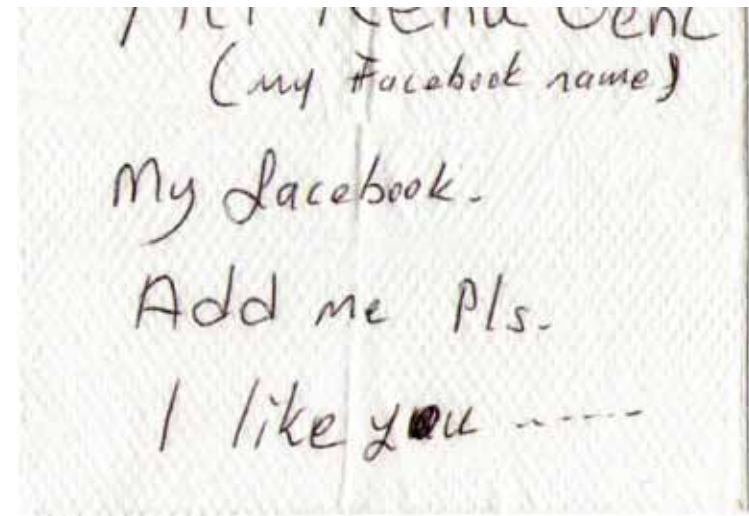 (my Facebook name)
My facebook.
Add me Pls.
I like you ------